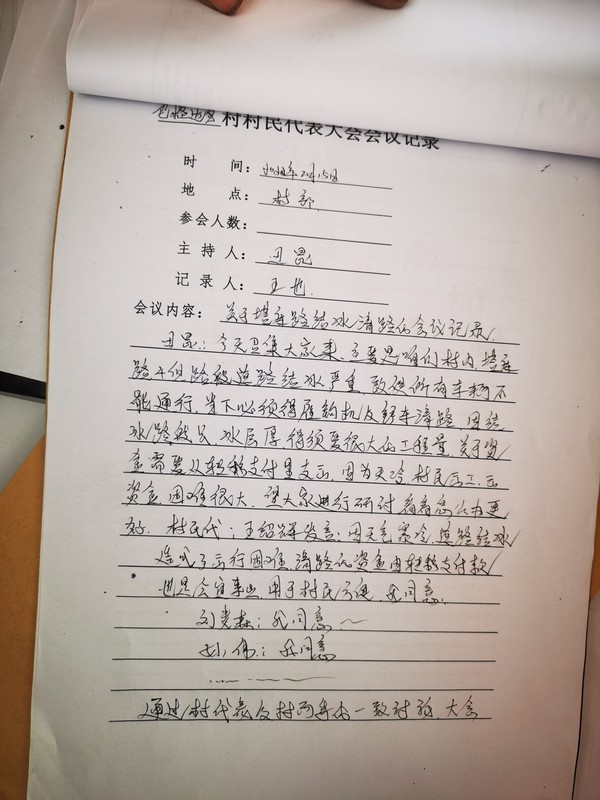 村村民代表大会会议记录
时 间:
地 点: 村部
参会人数:
主 持 人: 田昆
记 录 人: 王也
会议内容: 关于 路结冰清路的会议记录
田昆: 今天召集大家来, 主要是咱们村内
路 组路 道路结冰严重, 致使所有车辆不
能通行, 当下必须得雇钩机及 车清路 因结
冰路 冰层厚 得须要很大的工程量 关于资
金需要从转移支付里支出, 因为天冷 村民出工、出
资金 困难很大, 望大家进行研讨 看看怎么办更
好. 村民代: 王绍 发言: 因天气寒冷, 道路结冰
造成了出行困难 清路的资金由转移支付款
也是合宜 用于村民方便 我同意.
刘 : 我同意
孙伟: 我同意
通过村代表及村两委 一致讨论, 大会